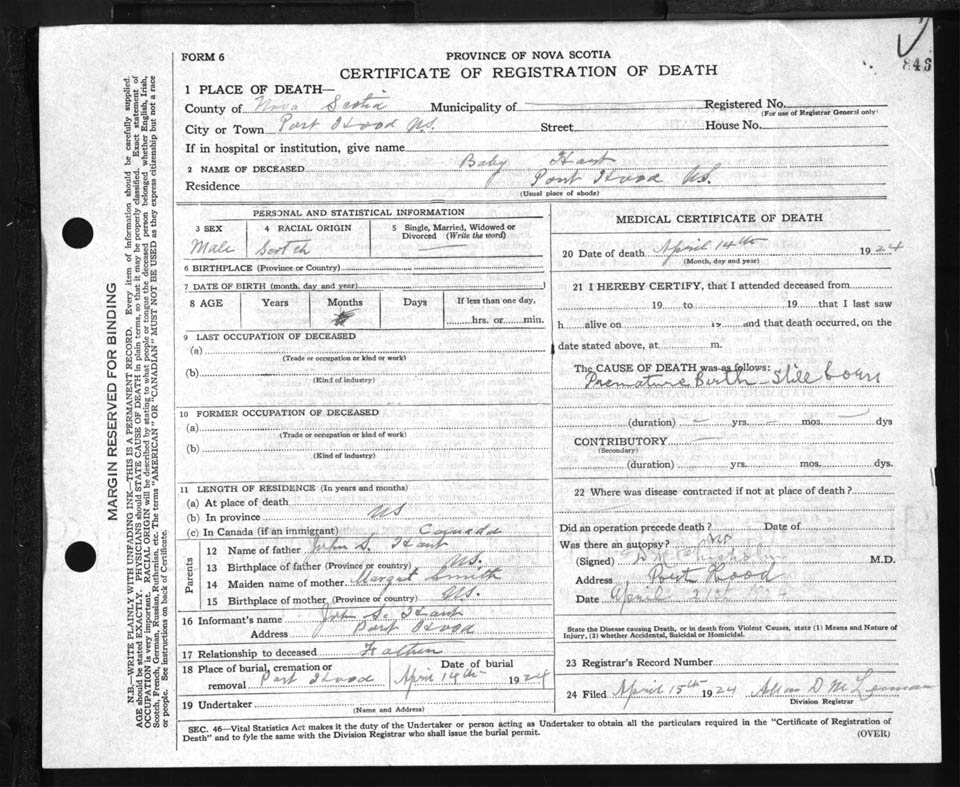 846
FORM 6
PROVINCE OF NOVA SCOTIA
CERTIFICATE OF REGISTRATION OF DEATH
1 PLACE OF DEATH—
County of Nova Scotia Municipality of Registered No.
(For use of Registrar General only)
City or Town Port Hood NS. Street House No.
If in hospital or institution, give name
2 NAME OF DECEASED Baby Hart
Residence Port Hood NS.
(Usual place of abode)
PERSONAL AND STATISTICAL INFORMATION
3 SEX Male
4 RACIAL ORIGIN Scotch
5 Single, Married, Widowed or Divorced (Write the word)
6 BIRTHPLACE (Province or Country)
7 DATE OF BIRTH (month, day and year)
8 AGE Years Months Days If less than one day,
hrs. or min.
9 LAST OCCUPATION OF DECEASED
(a)
(Trade or occupation or kind or work)
(b)
(Kind of industry)
10 FORMER OCCUPATION OF DECEASED
(a)
(Trade or occupation or kind of work)
(b)
(Kind of industry)
11 LENGTH OF RESIDENCE (In years and months)
(a) At place of death
(b) In province NS
(c) In Canada (if an immigrant) Canada
Parents
12 Name of father John S. Hart
13 Birthplace of father (Province or country) NS.
14 Maiden name of mother Margret Smith
15 Birthplace of mother (Province or country) NS.
16 Informant's name John S. Hart
Address Port Hood
17 Relationship to deceased Father
18 Place of burial, cremation or removal Port Hood
Date of burial
April 14th 1924
19 Undertaker
(Name and Address)
MEDICAL CERTIFICATE OF DEATH
20 Date of death April 14th 1924
(Month, day and year)
21 I HEREBY CERTIFY, that I attended deceased from
19 to 19 that I last saw
h alive on 19 and that death occurred, on the
date stated above, at m.
The CAUSE OF DEATH was as follows:
Premature Birth - Still born
(duration) yrs. mos. dys
CONTRIBUTORY
(Secondary)
(duration) yrs. mos. dys.
22 Where was disease contracted if not at place of death?
Did an operation precede death? Date of
Was there an autopsy? No
(Signed) Chisholm M.D.
Address Port Hood
Date April 21st 1924
State the Disease causing Death, or in death from Violent Causes, state (1) Means and Nature of
Injury, (2) whether Accidental, Suicidal or Homicidal.
23 Registrar's Record Number
24 Filed April 15th 1924 Allan D
Division Registrar
SEC. 46—Vital Statistics Act makes it the duty of the Undertaker or person acting as Undertaker to obtain all the particulars required in the "Certificate of Registration of
Death" and to fyle the same with the Division Registrar who shall issue the burial permit.
(OVER)
MARGIN RESERVED FOR BINDING
N.B.—WRITE PLAINLY WITH UNFADING INK—THIS IS A PERMANENT RECORD. Every item of information should be carefully supplied.
AGE should be stated EXACTLY. PHYSICIANS should STATE CAUSE OF DEATH in plain terms, so that it may be properly classified. Exact statement of
OCCUPATION is very important. RACIAL ORIGIN will be described by stating to what people or tongue the deceased person belonged whether English, Irish,
Scotch, French, German, Russian, Ruthenian, etc. The terms "AMERICAN" or "CANADIAN" MUST NOT BE USED as they express citizenship but not a race
or people. See instructions on back of Certificate.